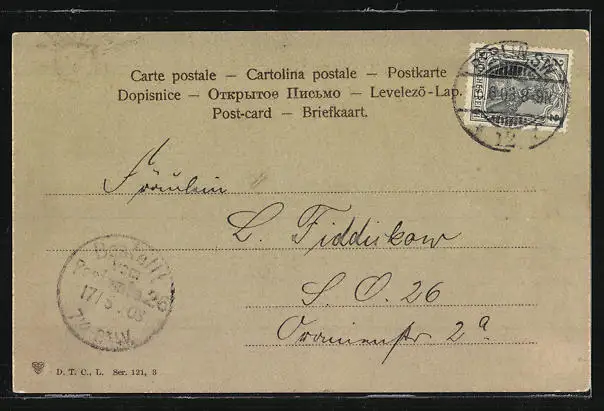 Carte postale — Cartolina postale — Postkarte
Dopisnice — Открытое Письмо — Levelező-Lap.
Post-card — Briefkaart.
BERLIN SW
12
Fräulein
L. Fiddickow
S. O. 26
Oranienstr 2a
Berlin
26
17/5 03
D. T. C., L. Ser. 121, 3